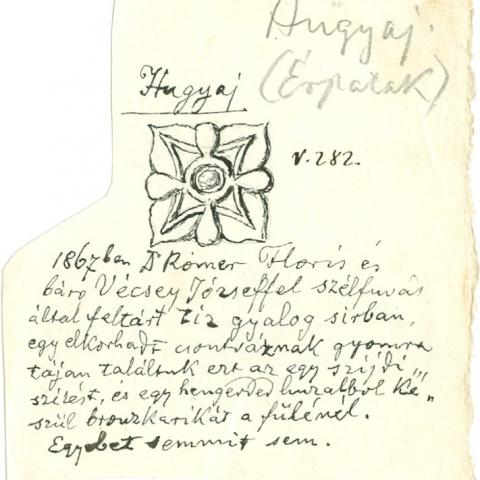 Hugyaj
(Érpatak)
Hugyaj
V. 282.
1867ben Dr Rómer Floris és
báró Vécsey Józseffel szélfuvás
által feltárt tíz gyalog sirban,
egy elkorhadt csontváznak gyomra
táján találtuk ezt az egy szíjdi„
szitést, és egy hengerded huzalból ké„
szül bronzkarikát a fülénél.
Egyebet semmit sem.